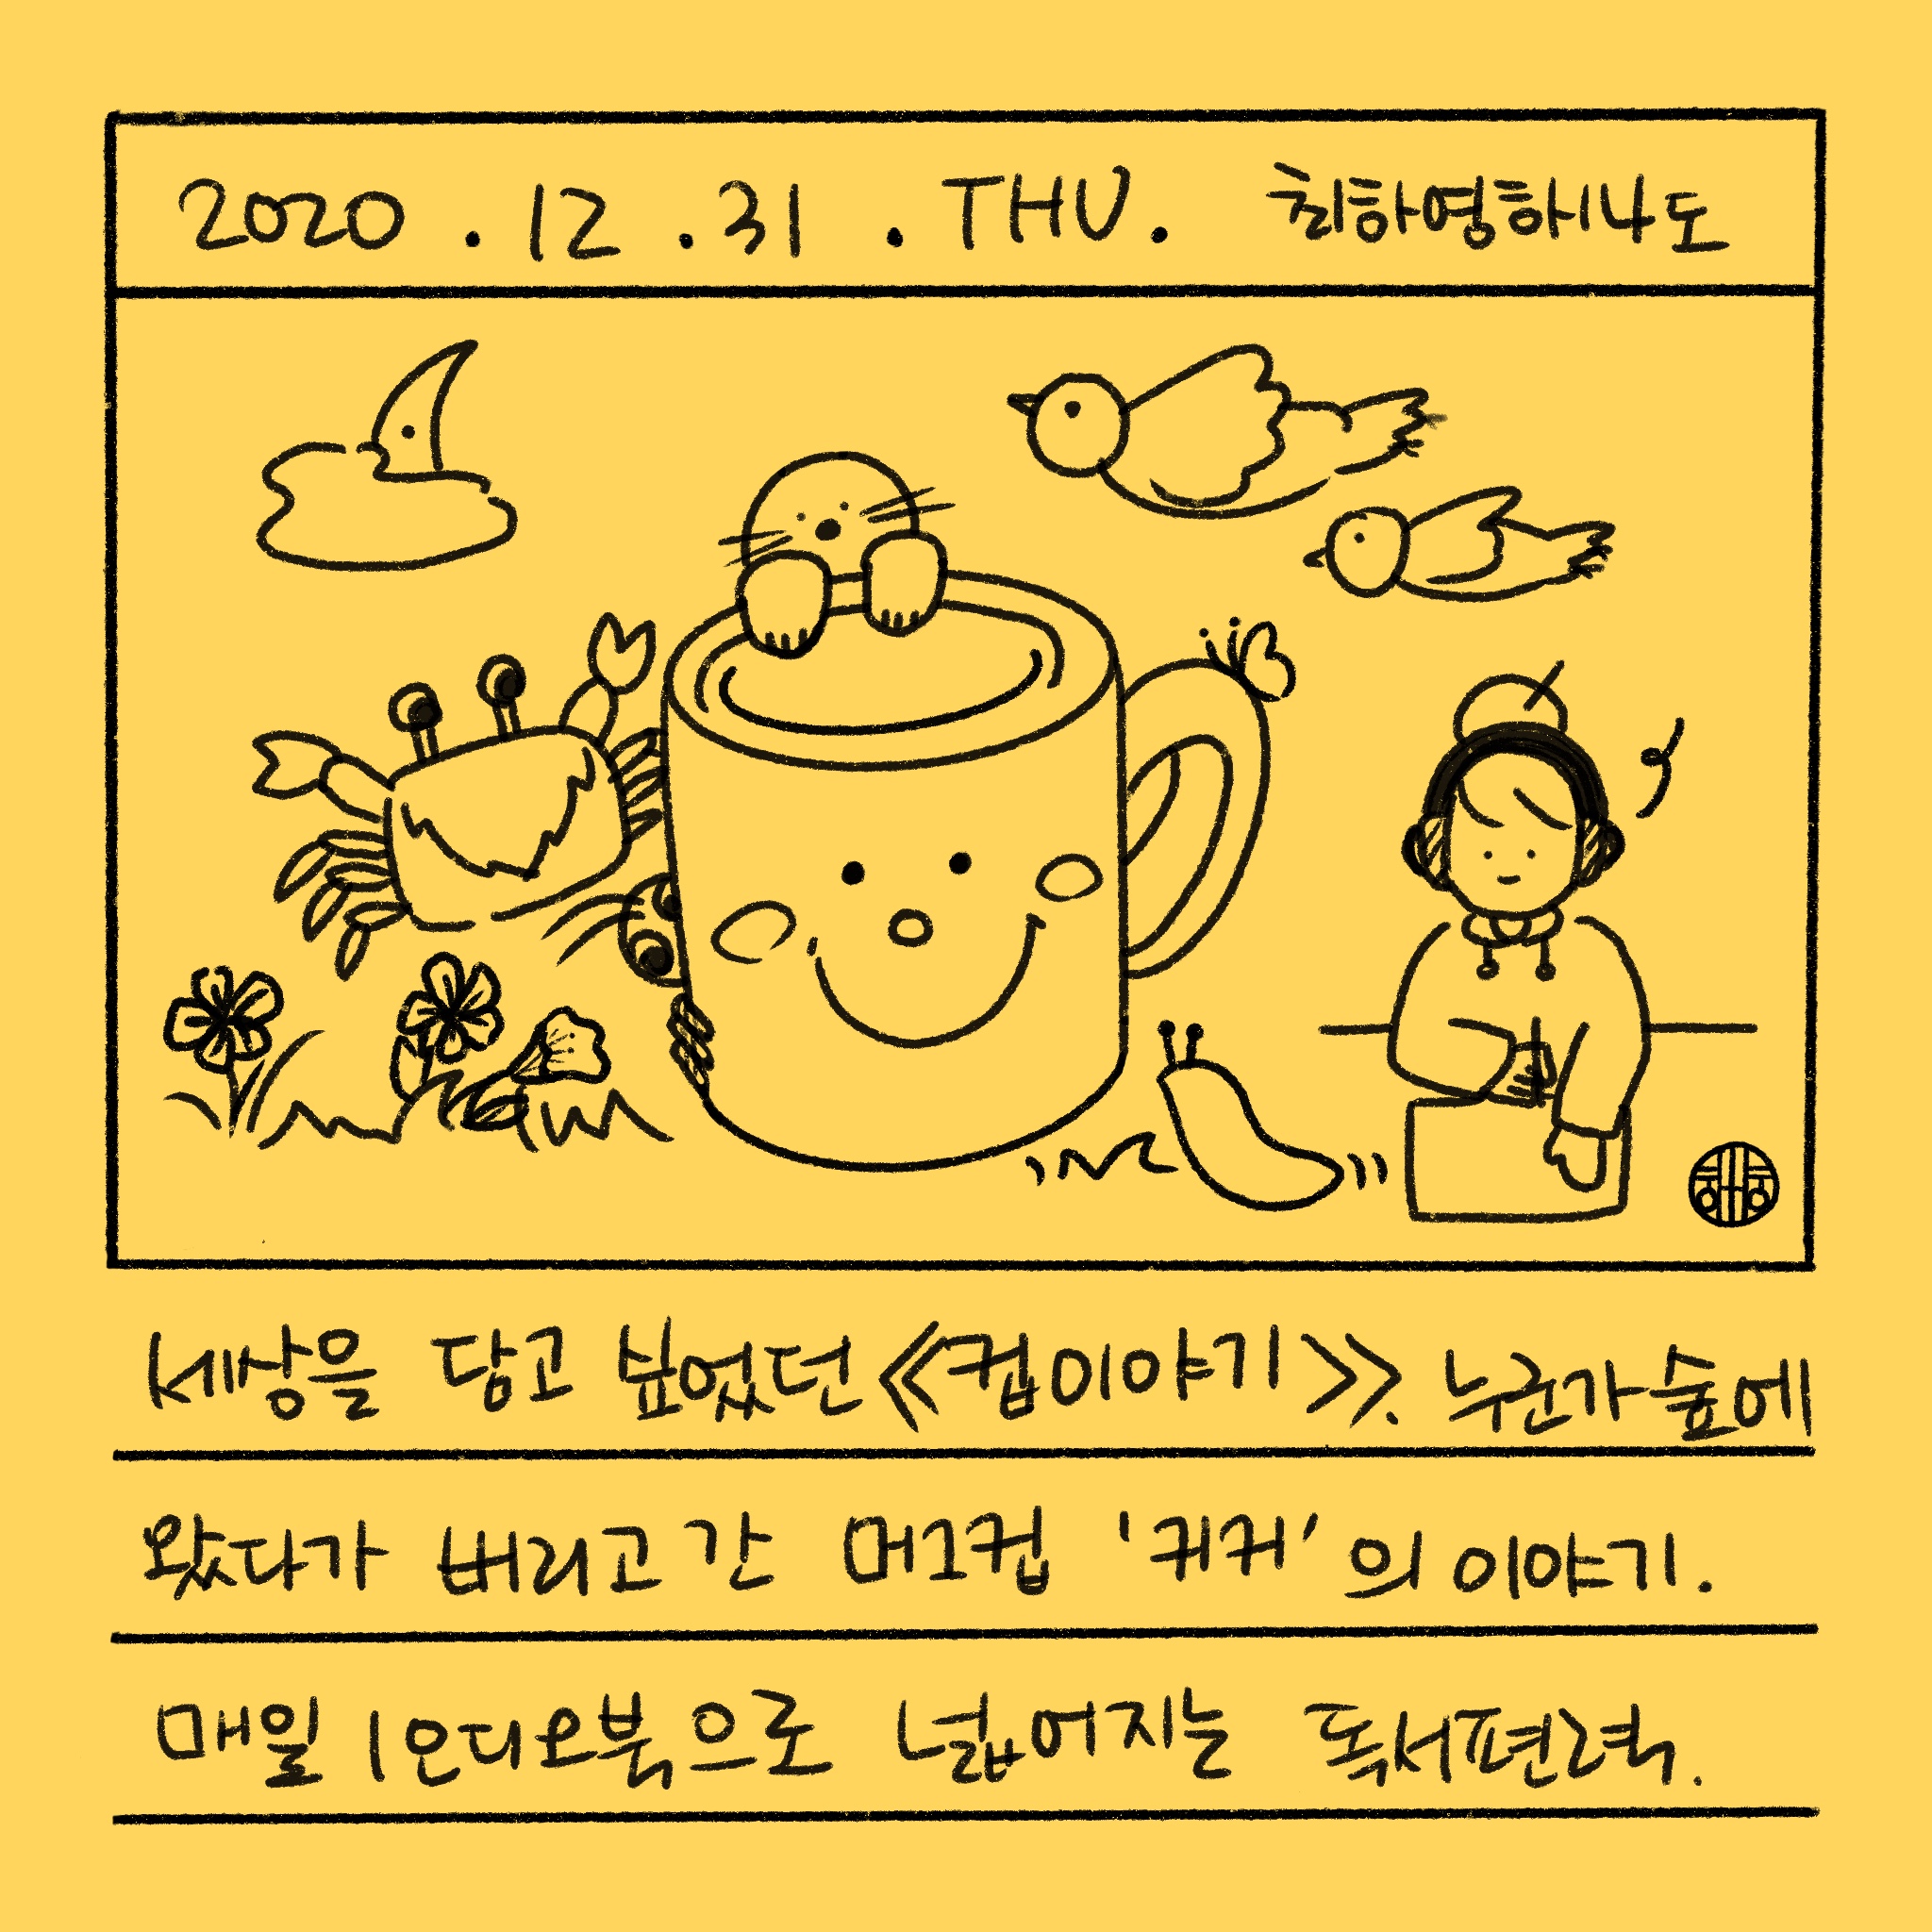 2020 . 12 . 31 . THU. 최하영하나도
세상을 담고 싶었던 《컵이야기》. 누군가 숲에
왔다가 버리고 간 머그컵 '커커'의 이야기.
매일 1오디오북으로 넓어지는 독서편력.